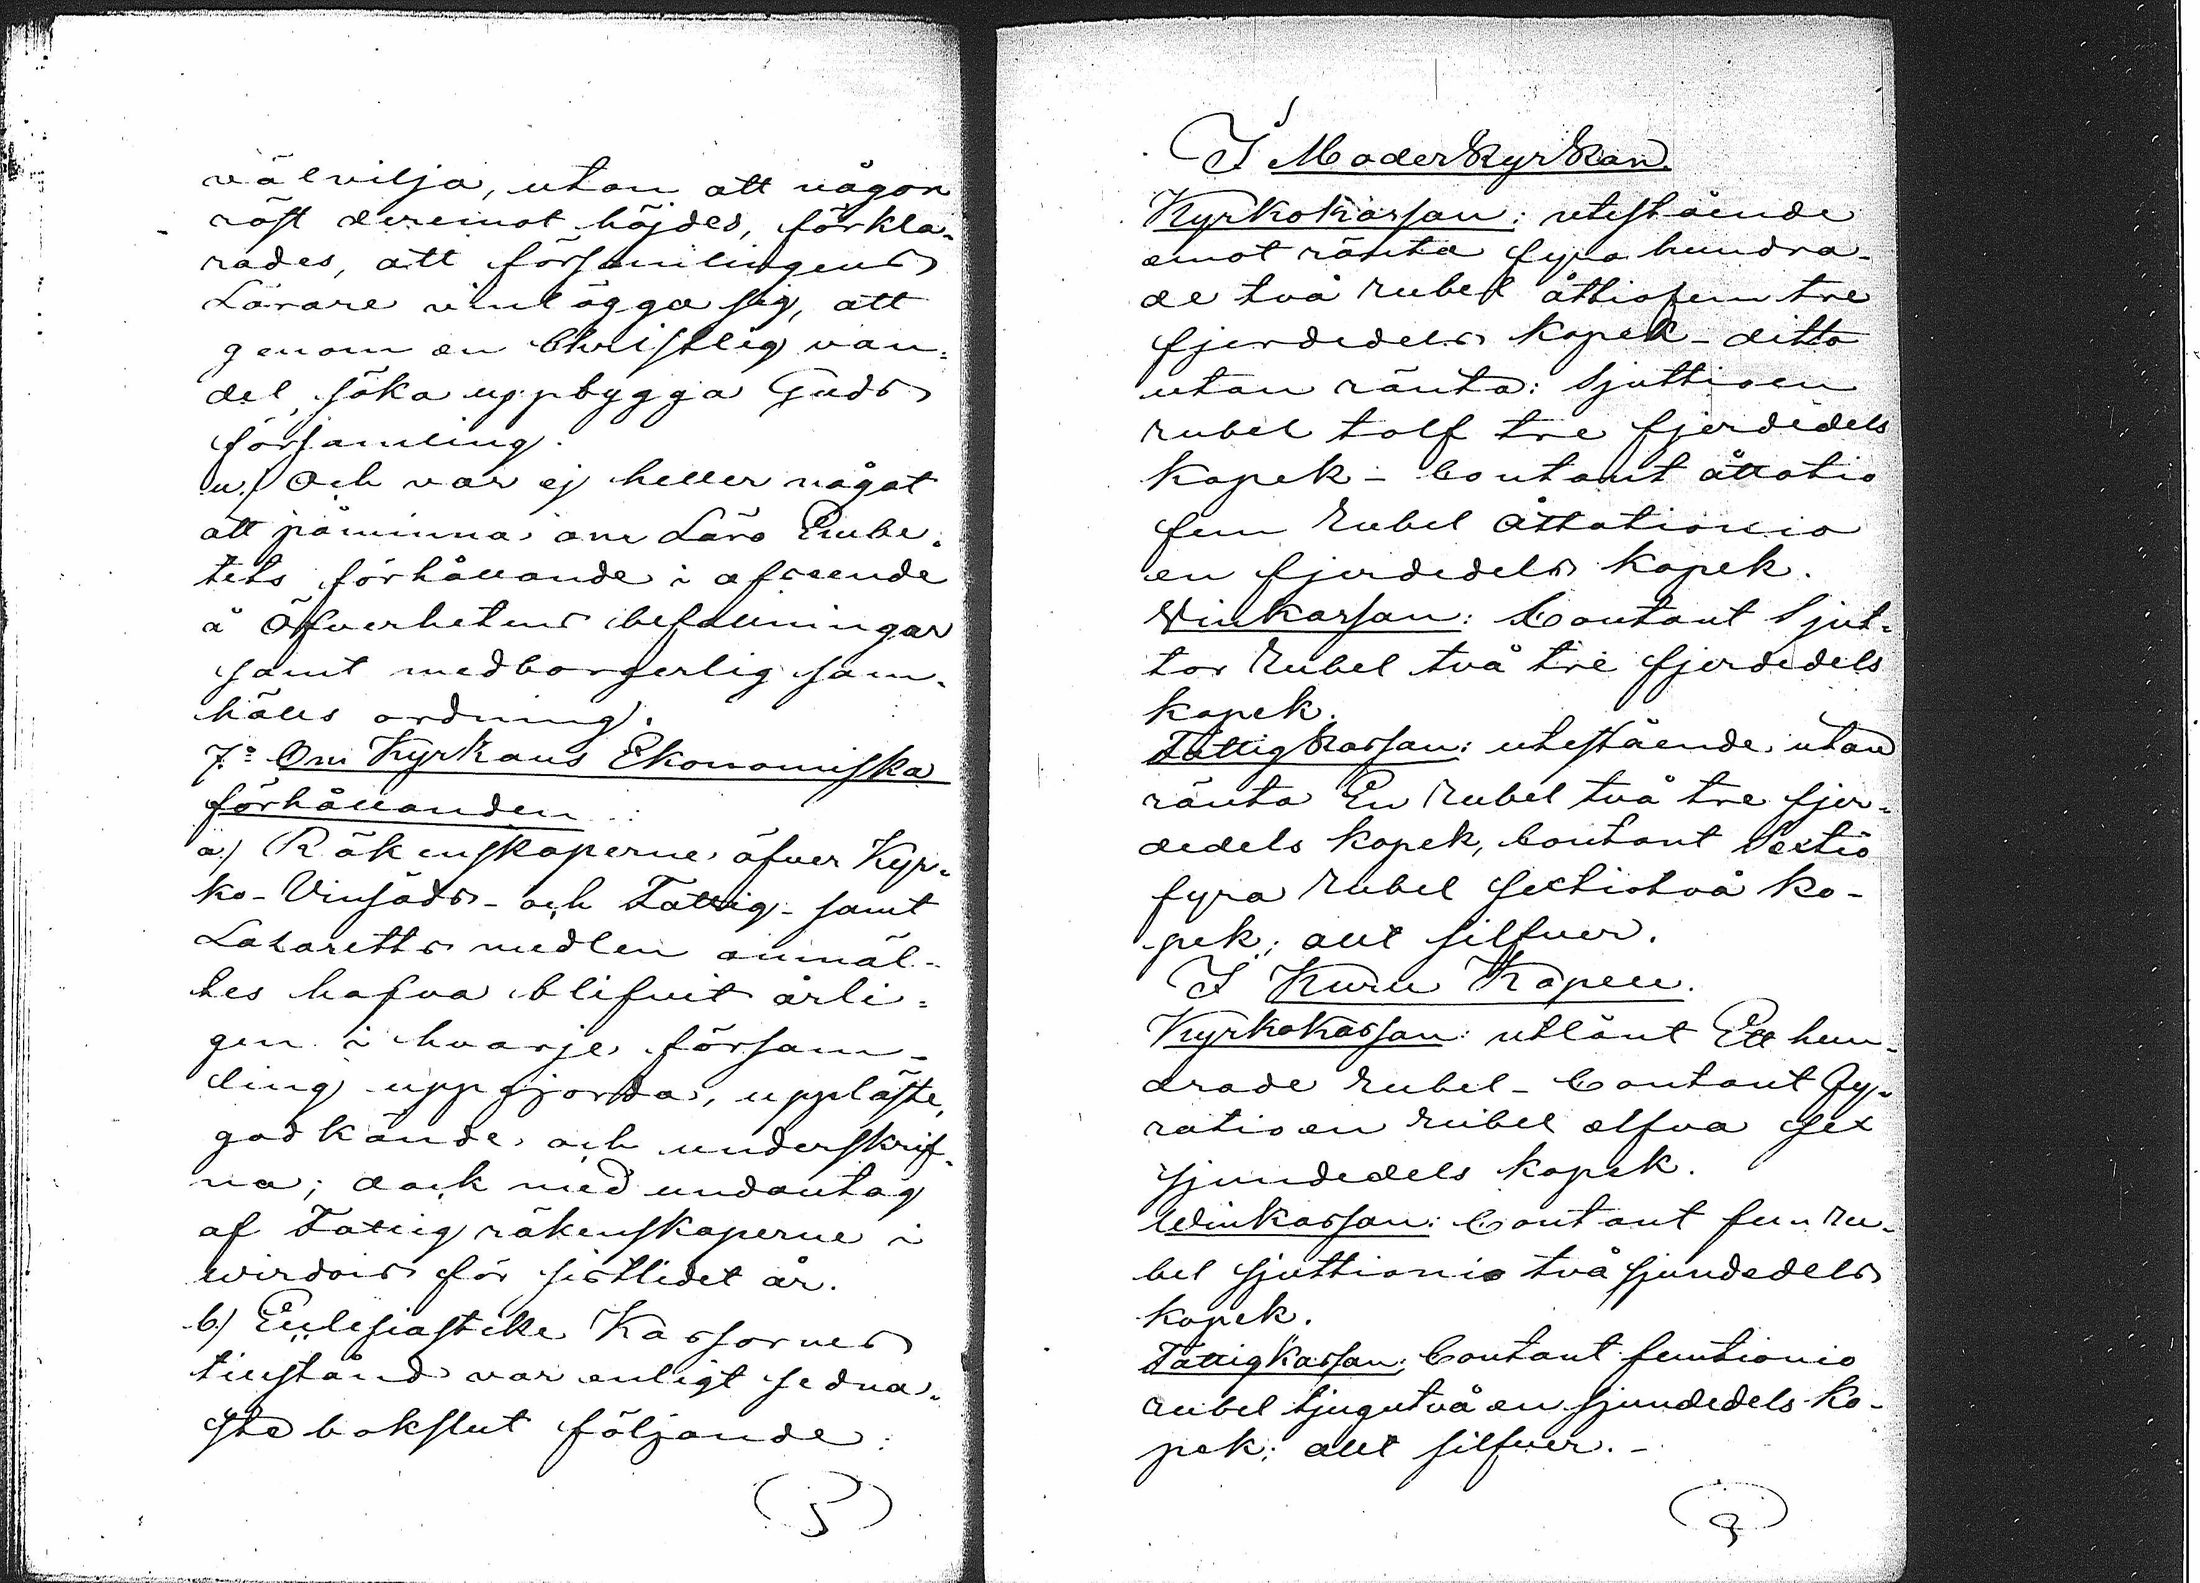 välvilja, utan att någon
röst deremot höjdes, förkla-
rades, att församlingens
Lärare vinlägga sig, att
genom en Christlig van-
del, söka uppbygga Guds
församling.
u.) Och var ej heller något
att påminna om Läro Embe-
tets förhållande i afseende
å Öfverhetens befallningar
samt medborgerlig sam-
hälls ordning.
7:o Om Kyrkans Ekonomiska
förhållanden:
a.) Räkenskaperne öfver Kyr-
ko- Vinsäds- och Fattig- samt
Lazaretts medlen anmäl-
tes hafva blifvit årli-
gen i hvarje försam-
ling uppgjorda, uppläste,
godkände och underskrif-
na; dock med undantag
af Fattig räkenskaperne i
Wirdois för sistlidet år.
b.) Ecclesiastike Kassornes
tillstånd var enligt sedna-
ste bokslut följande:
(5)
I Moderkyrkan.
Kyrkokassan: utestående
emot ränta fyra hundra-
de två rubel åttiofem tre
fjerdedels kopek - ditto
utan ränta: Sjuttioen
rubel tolf tre fjerdedels
kopek - Contant åttatio
fem rubel åttationio
en fjerdedels kopek.
Vinkassan: Contant Sjut-
ton Rubel två tre fjerdedels
kopek.
Fattigkassan: utestående utan
ränta En Rubel två tre fjer-
dedels kopek, Contant Sextio
fyra rubel sextiotvå ko-
pek; allt silfver.
I Kuru Kapell.
Kyrkokassan: utlånt Ett hun-
drade rubel - Contant Fy-
ratioen rubel elfva sex
sjundedels kopek.
Winkassan: Contant fem ru-
bel sjuttionio två sjundedels
kopek.
Fattigkassan: Contant femtionio
rubel tjugutvå en sjundedels ko-
pek; allt silfver. -